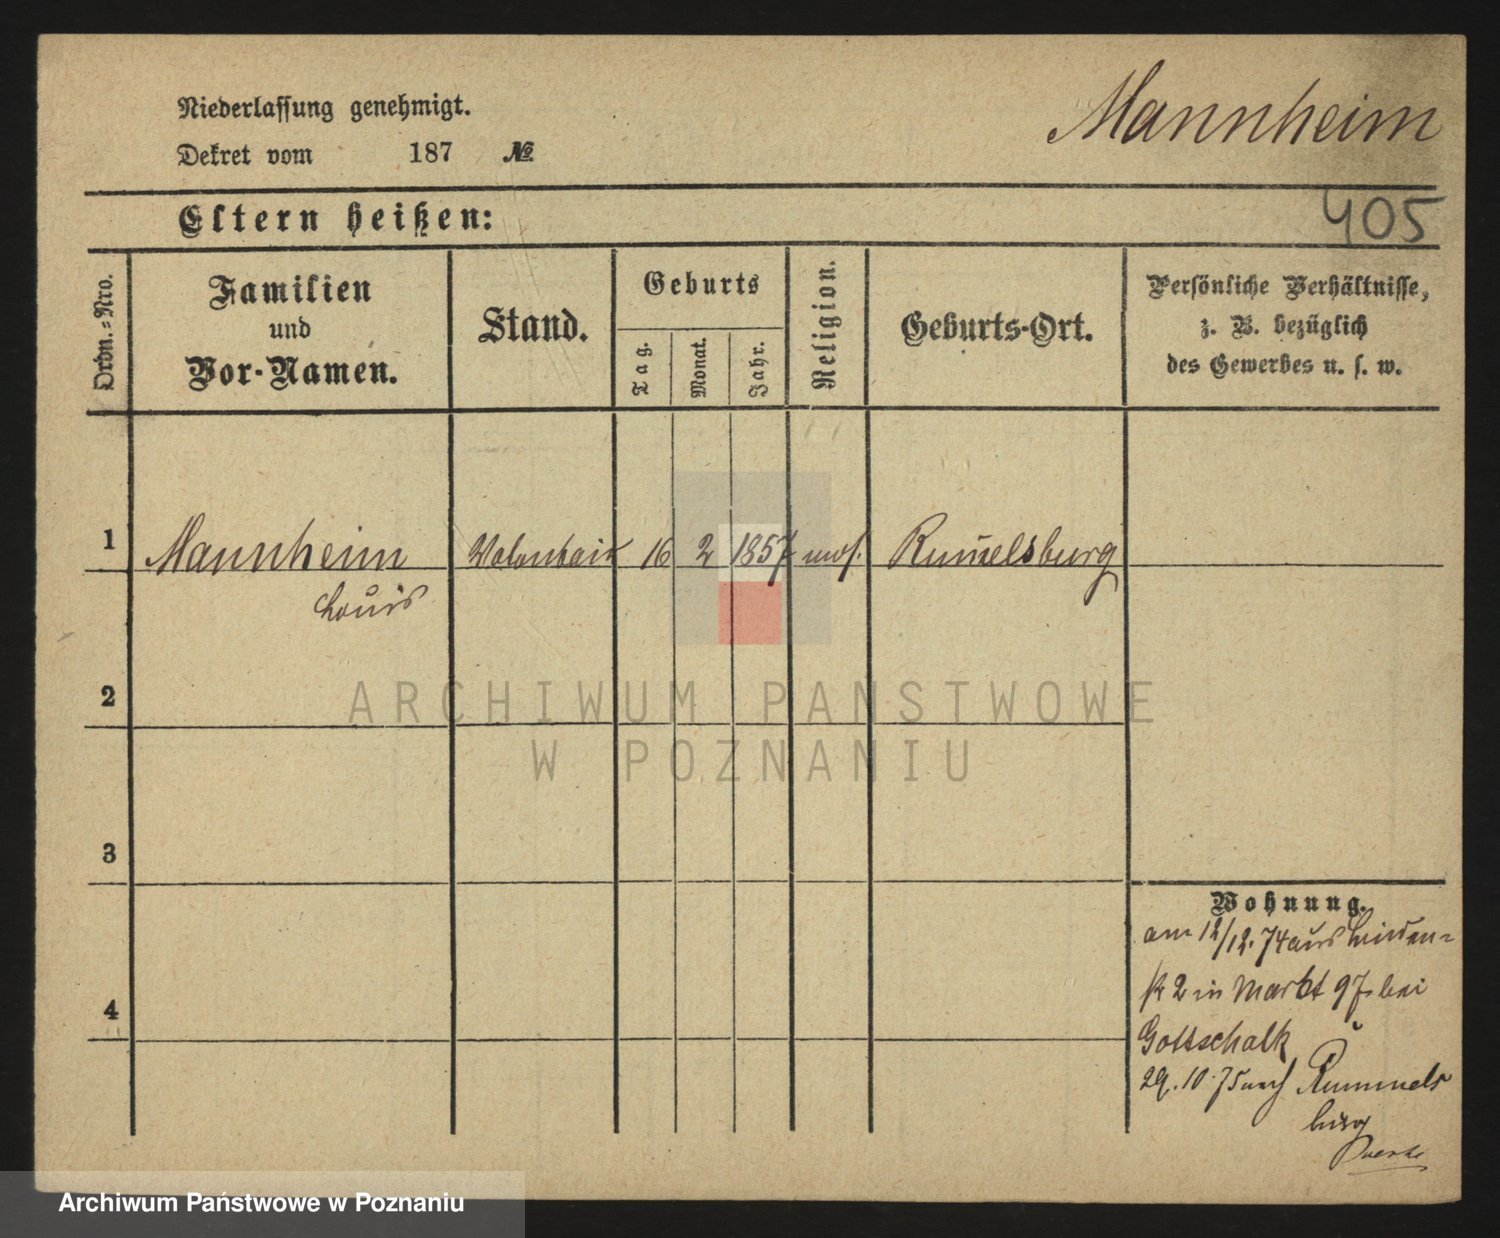 Mannheim
Niederlassung genehmigt.
Dekret vom 187 №
405
Eltern heißen:
Ordn.=Nro.
Familien
und
Vor-Namen.
Stand.
Geburts
Tag.
Monat.
Jahr.
Religion.
Geburts-Ort.
Persönliche Verhältnisse,
z. B. bezüglich
des Gewerbes u. s. w.
1 Mannheim Volontair 16 2 1857 mos. Rum̄elsburg
Louis
2
3
4
Wohnung.
am 12/12.74 aus Linden=
str 2 in Markt 97 bei
Gottschalk
29.10.75 nach Rummels
burg
ARCHIWUM PAŃSTWOWE
W POZNANIU
Archiwum Państwowe w Poznaniu